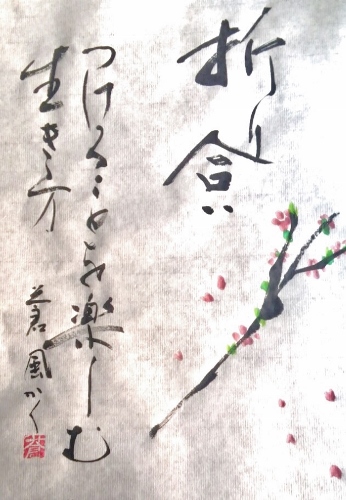 折り合い
つけることを楽しむ
生き方
蒼風かく
蒼